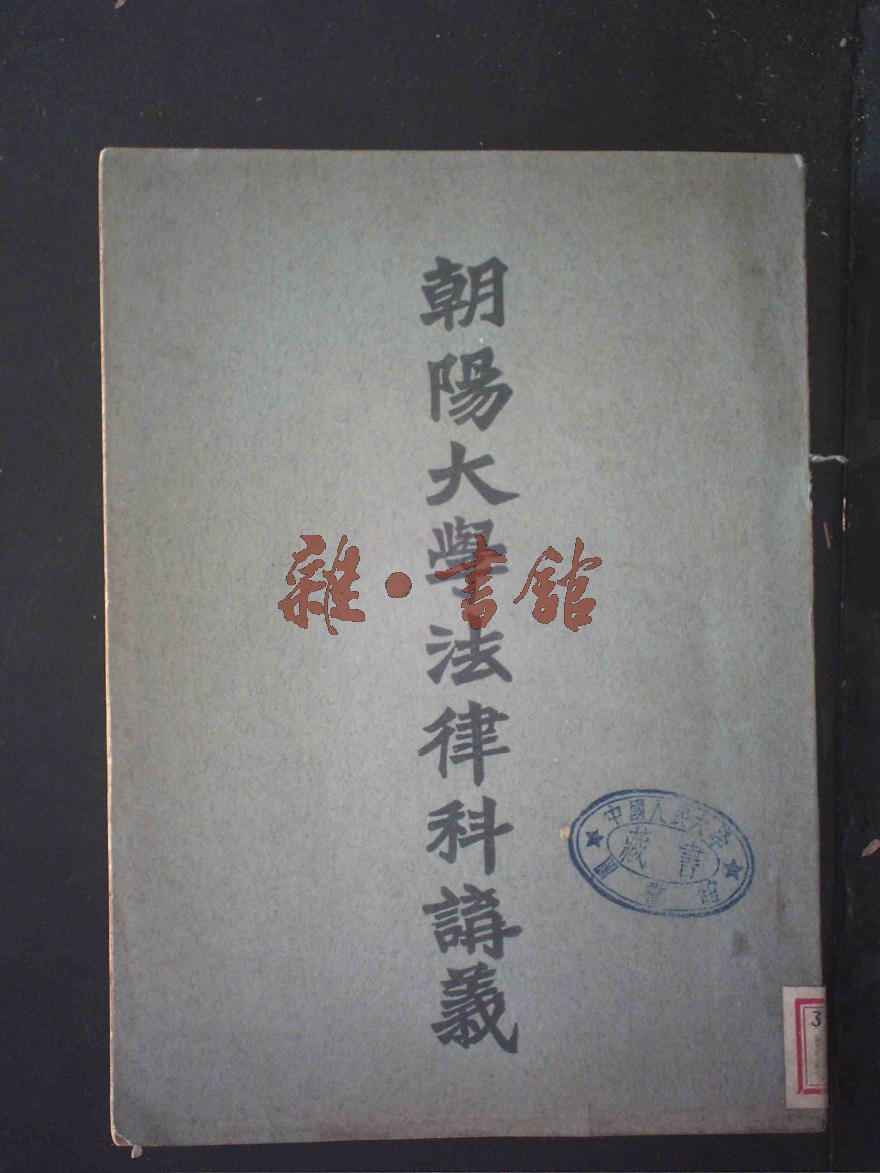 朝陽大學法律科講義
雜·書館
中國人民大學
藏書
圖書館
3